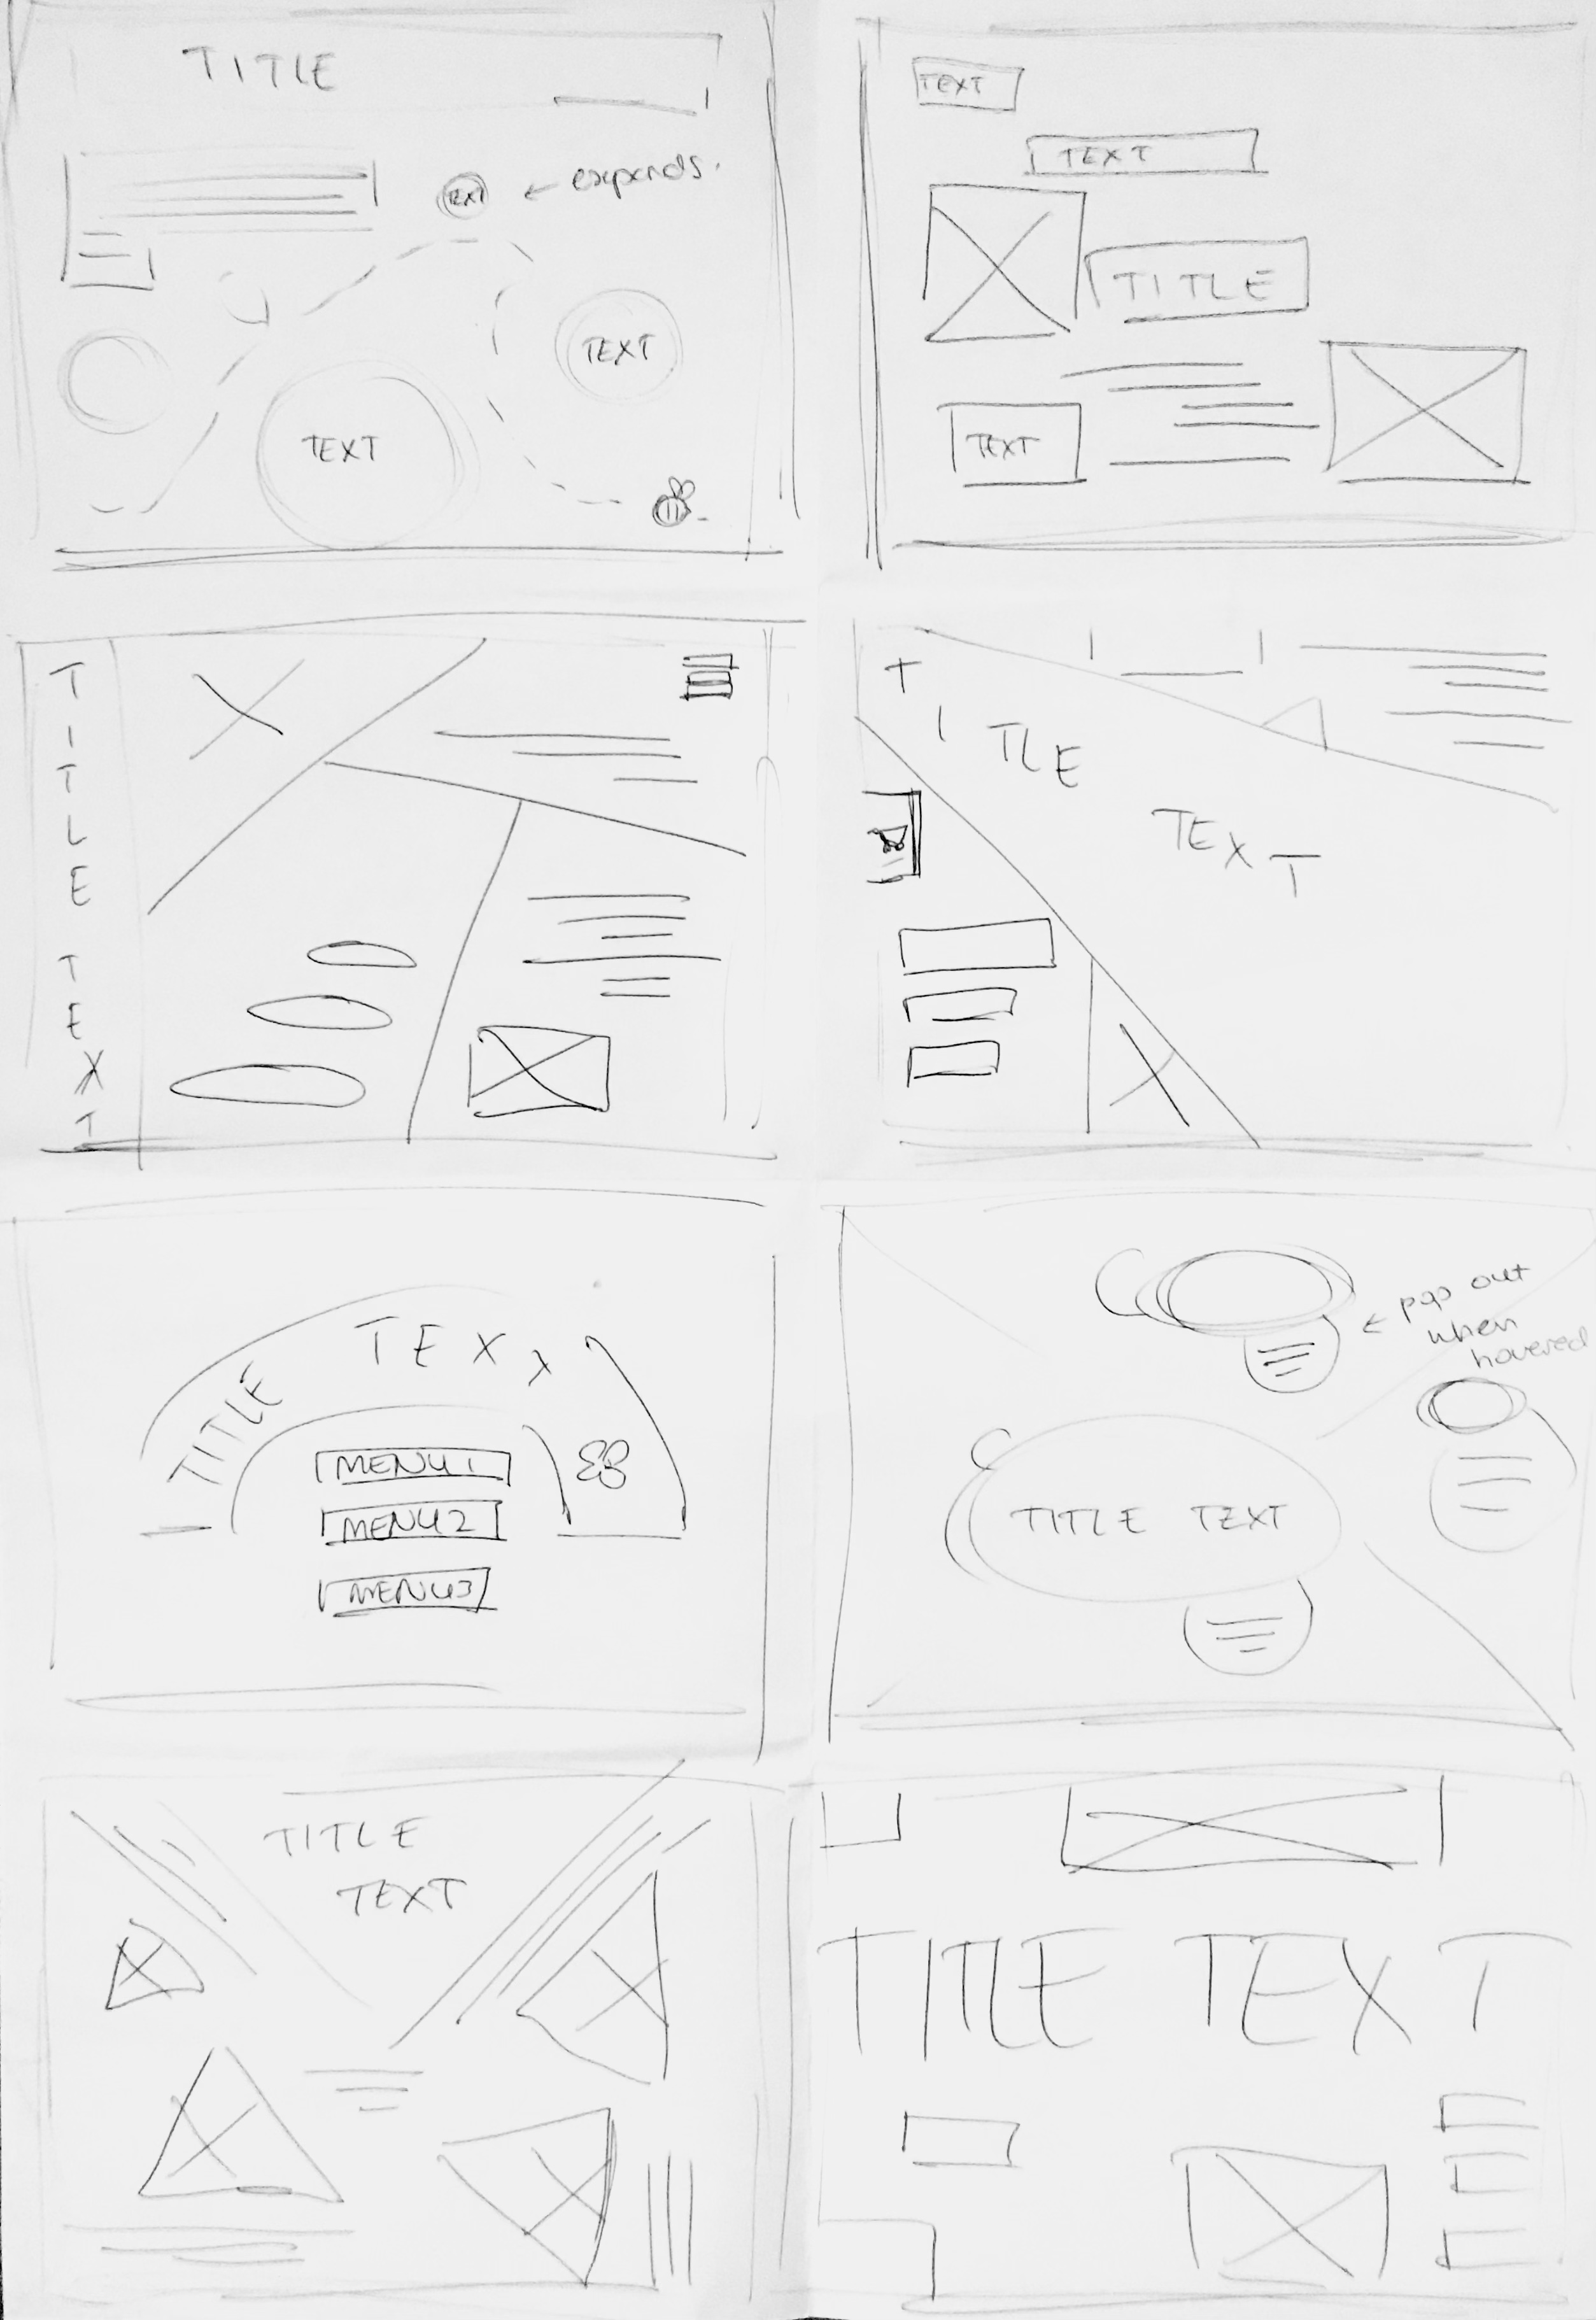 TITLE
TEXT
← expands.
TEXT
TEXT
TEXT
TEXT
TITLE
TEXT
TITLE
TEXT
TITLE
TEXT
TITLE
TEX
MENU1
MENU2
MENU3
← pop out
when
hovered
TITLE TEXT
TITLE
TEXT
TITLE TEXT